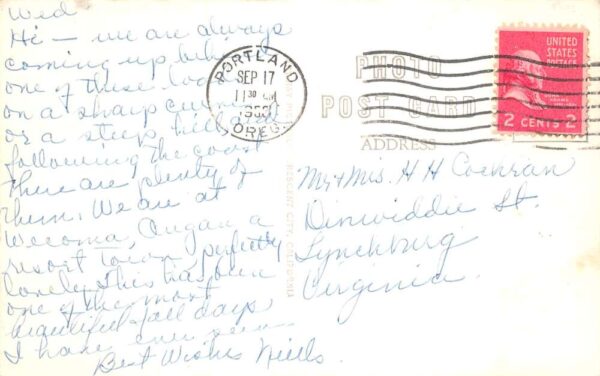 Wed
Hi — we are always
coming up behind
one of these
on a sharp curve
or a steep hill and
following the coast
there are plenty of
them. We are at
Wecoma, Oregon a
resort town perfectly
lovely. This has been
one of the most
beautiful fall days
I have ever seen
Best Wishes Neills.
PORTLAND
SEP 17
11 30 AM
OREG.
UNITED
STATES
POSTAGE
2 CENTS 2
PHOTO
POST CARD
ADDRESS
CRESCENT CITY, CALIFORNIA
Mr + Mrs. H H Cochran
Dinwiddie St.
Lynchburg
Virginia.